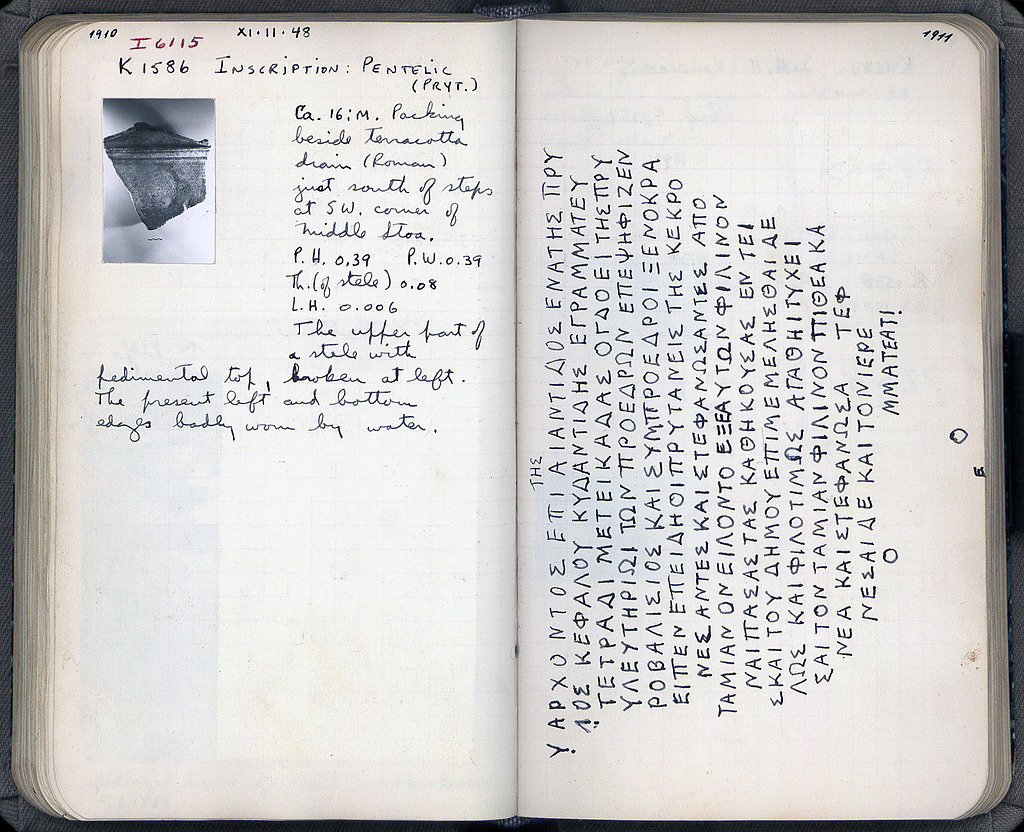 1910
XI·11·48
I 6115
K 1586 INSCRIPTION: PENTELIC
(PRYT.)
Ca. 16:M. Packing
beside terracotta
drain (Roman)
just south of steps
at SW. corner of
Middle Stoa.
P.H. 0.39 P.W. 0.39
Th. (of stele) 0.08
L.H. 0.006
The upper part of
a stele with
pedimental top, broken at left.
The present left and bottom
edges badly worn by water.
1911
ΤΗΣ
Υ ΑΡΧΟΝΤΟΣ ΕΠΙ ΑΙΑΝΤΙΔΟΣ ΕΝΑΤΗΣ ΠΡΥ
ΛΟΣ ΚΕΦΑΛΟΥ ΚΥΔΑΝΤΙΔΗΣ ΕΓΡΑΜΜΑΤΕΥ
ΤΕΤΡΑΔΙ ΜΕΤΕΙΚΑΔΑΣ ΟΓΔΟΕΙ ΤΗΣ ΠΡΥ
ΥΛΕΥΤΗΡΙΩΙ ΤΩΝ ΠΡΟΕΔΡΩΝ ΕΠΕΨΗΦΙΖΕΝ
ΡΟΒΑΛΙΣΙΟΣ ΚΑΙ ΣΥΜΠΡΟΕΔΡΟΙ ΞΕΝΟΚΡΑ
ΕΙΠΕΝ ΕΠΕΙΔΗ ΟΙ ΠΡΥΤΑΝΕΙΣ ΤΗΣ ΚΕΚΡΟ
ΝΕΣΑΝΤΕΣ ΚΑΙ ΣΤΕΦΑΝΩΣΑΝΤΕΣ ΑΠΟ
ΤΑΜΙΑΝ ΟΝ ΕΙΛΟΝΤΟ ΕΞ ΕΑΥΤΩΝ ΦΙΛΙΝΟΝ
ΝΑΙ ΠΑΣΑΣ ΤΑΣ ΚΑΘΗΚΟΥΣΑΣ ΕΝ ΤΕΙ
Σ ΚΑΙ ΤΟΥ ΔΗΜΟΥ ΕΠΙΜΕΜΕΛΗΣΘΑΙ ΔΕ
ΛΩΣ ΚΑΙ ΦΙΛΟΤΙΜΩΣ ΑΓΑΘΗΙ ΤΥΧΕΙ
ΣΑΙ ΤΟΝ ΤΑΜΙΑΝ ΦΙΛΙΝΟΝ ΠΙΘΕΑ ΚΑ
ΝΕΑ ΚΑΙ ΣΤΕΦΑΝΩΣΑ ΤΕΦ
ΝΕΣΑΙ ΔΕ ΚΑΙ ΤΟΝ ΙΕΡΕ
ΜΜΑΤΕΑ
Ο
Ε
Ο